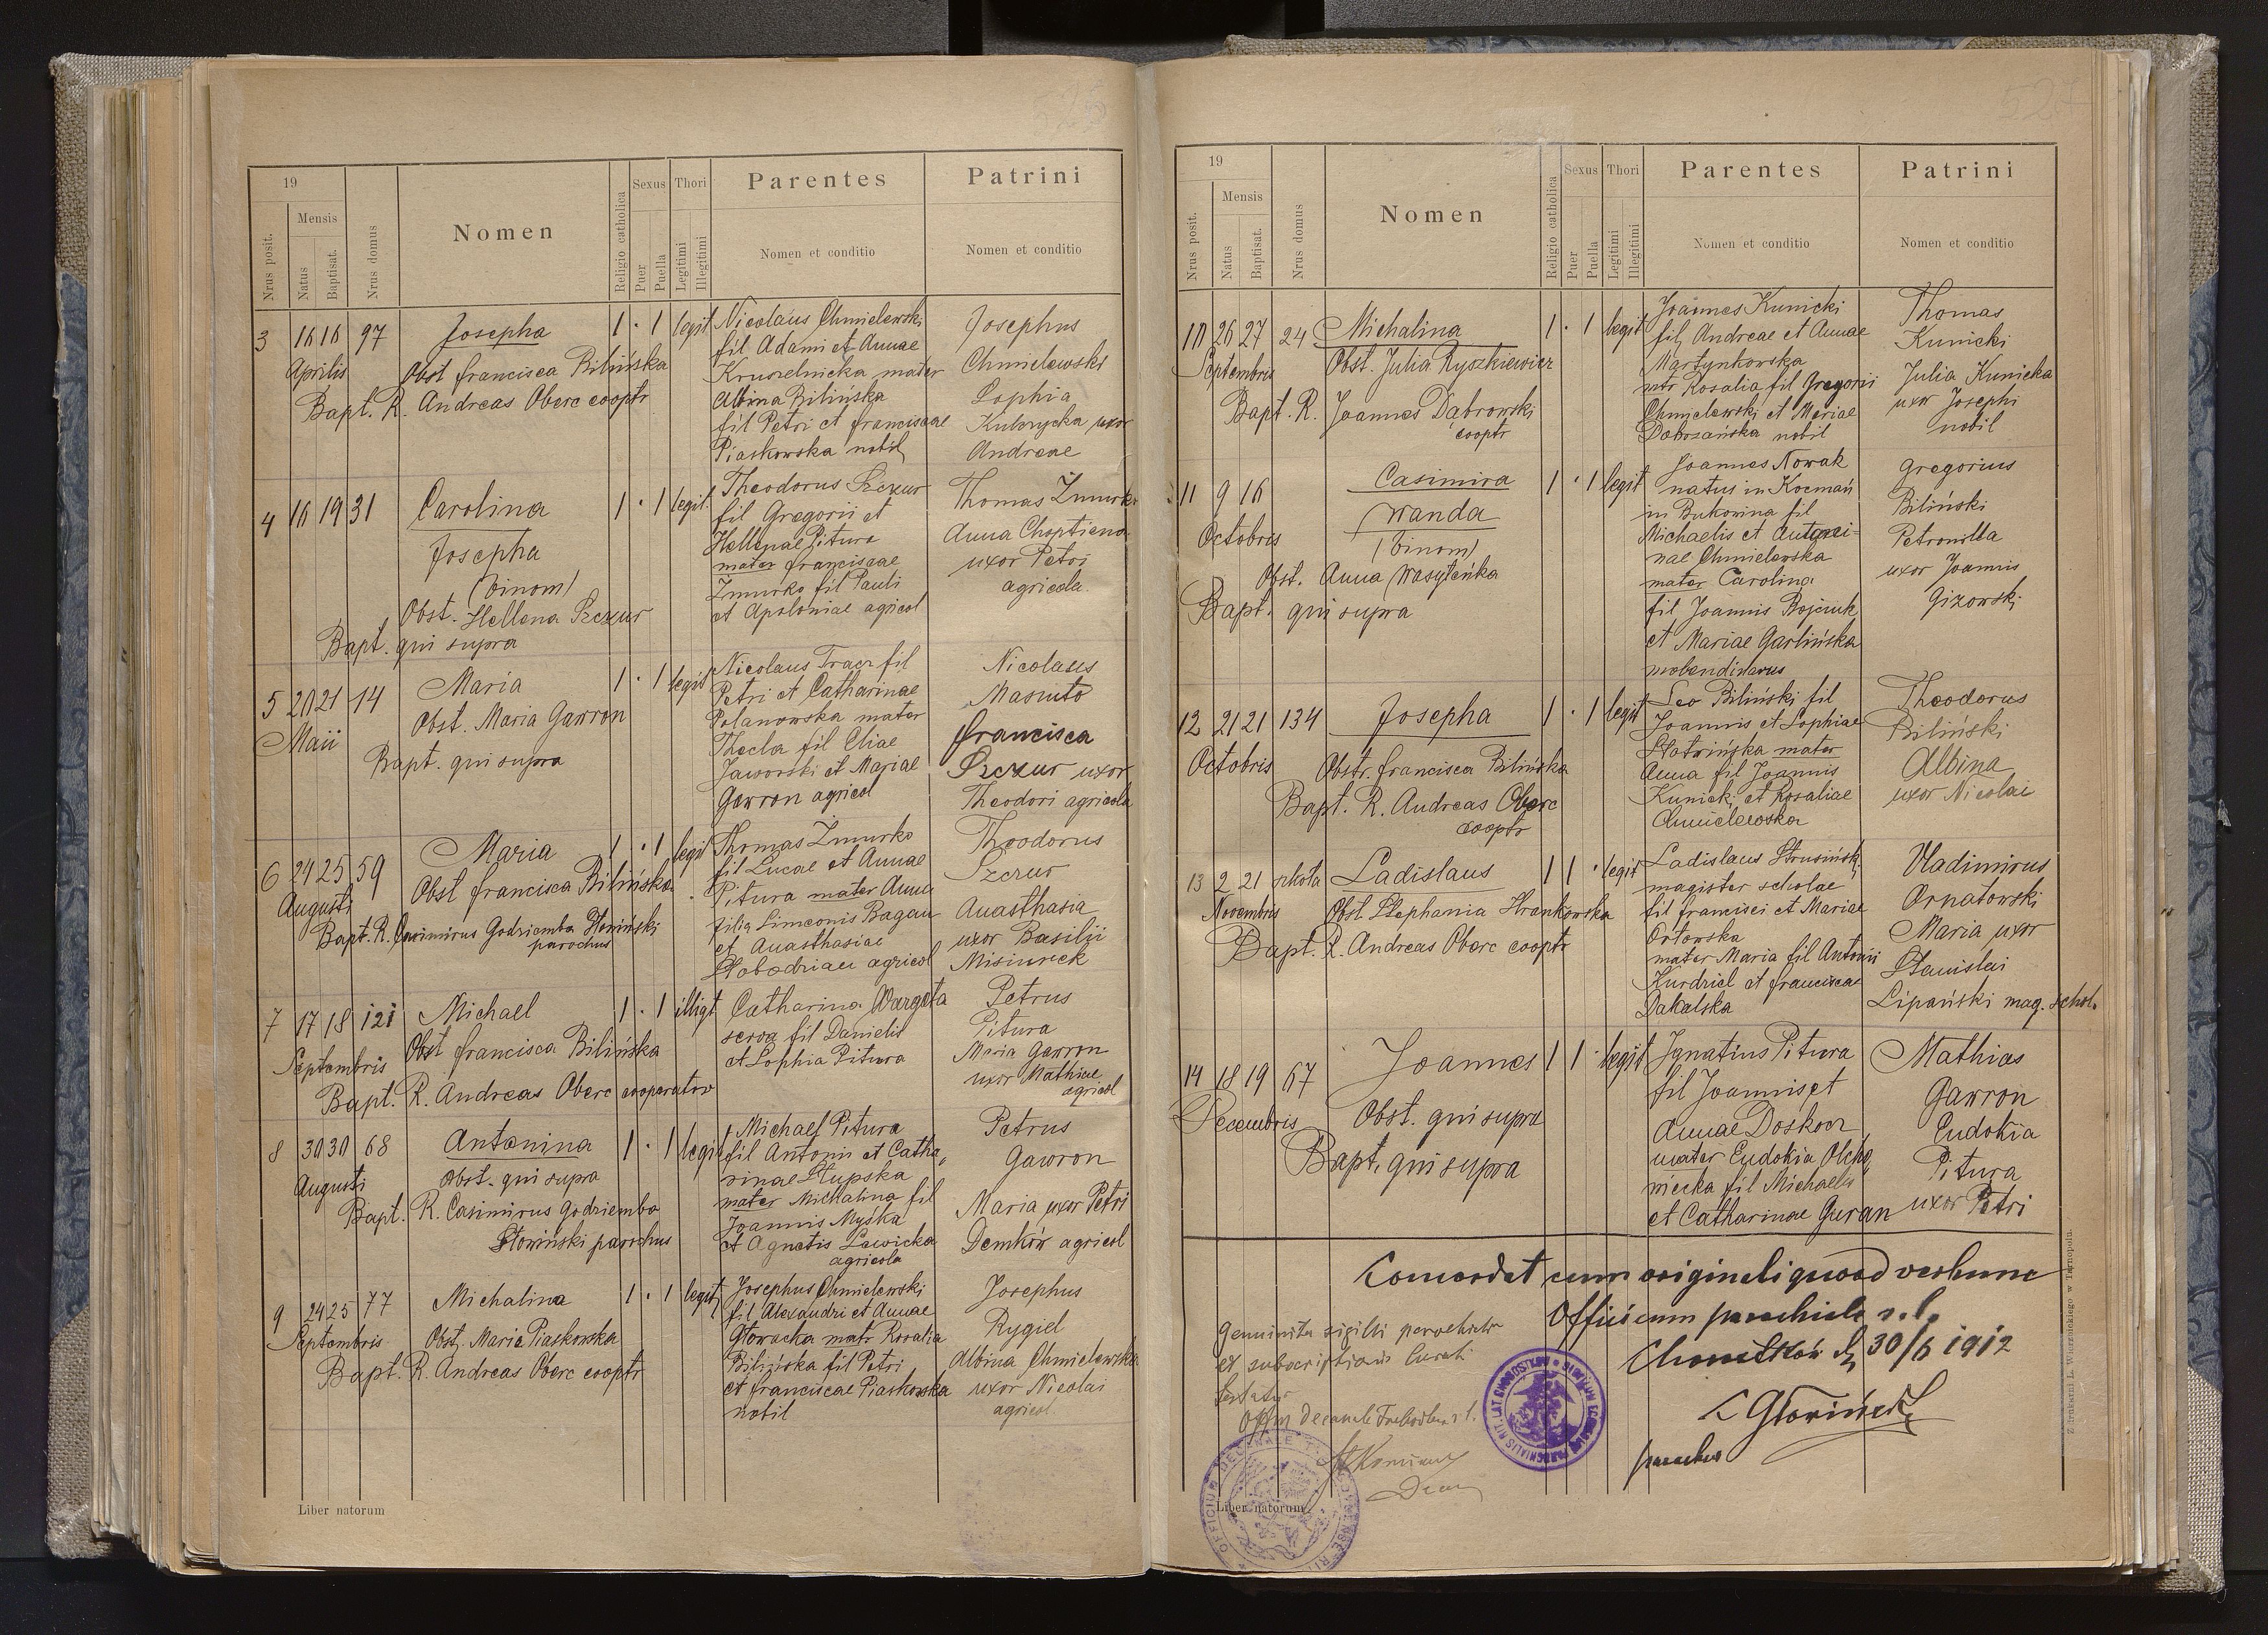 19
Nrus posit.
Mensis
Natus
Baptisat.
Nrus domus
Nomen
Religio catholica
Sexus
Puer
Puella
Thori
Legitimi
Illegitimi
Parentes
Nomen et conditio
Patrini
Nomen et conditio
3 16 16 97 Josepha 1 · 1 legit
Aprilis Obst francisca Bilińska
Bapt. R. Andreas Oberc cooptr
Nicolaus Chmielewski
fil Adami et Annae
Kruszelnicka mater
Albina Bilińska
fil Petri et franciscae
Piaskowska nobil
Josephus
Chmielewski
Sophia
Kubrycka uxor
Andreae
4 16 19 31 Carolina 1 · 1 legit.
Josepha
(binom)
Obst. Hellena Szczur
Bapt. qui supra
Theodorus Szczur
fil Gregorii et
Hellenae Pitura
mater franciscae
Zmurko fil Pauli
et Apoloniae agricol
Thomas Zmurko
Anna Choptiena
uxor Petri
agricola
5 20 21 14 Maria 1 · 1 legit
Maii Obst. Maria Gawron
Bapt. qui supra
Nicolaus Tracz fil
Petri et Catharinae
Polanowska mater
Thecla fil Eliae
Jaworski et Mariae
Gawron agricol
Nicolaus
Masiuto
francisca
Szczur uxor
Theodori agricola
6 24 25 59 Maria 1 · 1 legit
Augusti Obst francisca Bilińska
Bapt. R. Casimirus Godziemba Słoniński
parochus
Thomas Zmurko
fil Lucae et Annae
Pitura mater Anna
filia Simeonis Bagan
et Anasthasiae
Słobodzian agricol
Theodorus
Szczur
Anasthasia
uxor Basilii
Misiurek
7 17 18 121 Michael 1 · 1 illigt
Septembris Obst francisca Bilińska
Bapt. R. Andreas Oberc cooperator
Catharina Wargota
serva fil Danielis
et Sophia Pitura
Petrus
Pitura
Maria Gawron
uxor Mathiae
agricol
8 30 30 68 Antonina 1 · 1 legit
Augusti Obst. qui supra
Bapt. R. Casimirus Godziemba
Słoniński parochus
Michael Pitura
fil Antonii et Catha,
rinae Słupska
mater Michalina fil
Joannis Myśka
et Agnetis Lewicka
agricola
Petrus
Gawron
Maria uxor Petri
Demków agricol
9 24 25 77 Michalina 1 · 1 legit
Septembris Obst. Maria Piaskowska
Bapt. R. Andreas Oberc cooptr
Josephus Chmielewski
fil Alexandri et Annae
Głowacka matr Rosalia
Bilińska fil Petri
et franciscae Piaskowska
nobil
Josephus
Rygiel
Albina Chmielewska
uxor Nicolai
agricol
Liber natorum
19
Nrus posit.
Mensis
Natus
Baptisat.
Nrus domus
Nomen
Religio catholica
Sexus
Puer
Puella
Thori
Legitimi
Illegitimi
Parentes
Nomen et conditio
Patrini
Nomen et conditio
10 26 27 24 Michalina 1 · 1 legit
Septembris Obst. Julia Ryszkiewicz
Bapt. R. Joannes Dąbrowski
cooptr
Joannes Kunicki
fil Andreae et Annae
Martynkowska
mtr Rosalia fil Gregorii
Chmielewski et Mariae
nobil
Thomas
Kunicki
Julia Kunicka
uxor Josephi
nobil
11 9 16 Casimira 1 · 1 legit
Octobris Wanda
(binom)
Obst. Anna Wasyleńka
Bapt. qui supra
Joannes Nowak
natus in Kocmań
in Bukowina fil
Michaelis et Antoni=
nae Chmielewska
mater Carolina
fil Joannis Bojczuk
et Mariae Garlińska
Gregorius
Biliński
Petronilla
uxor Joannis
Gizowski
12 21 21 134 Josepha 1 · 1 legit
Octobris Obstr. francisca Bilińska
Bapt. R. Andreas Oberc
cooptr
Leo Biliński fil
Joannis et Sophiae
Słotwińska mater
Anna fil Joannis
Kunicki et Rosaliae
Chmielewska
Theodorus
Biliński
Albina
uxor Nicolai
13 2 21 szkoła Ladislaus 1 1 · legit
Novembris Obst Stephania Hrankowska
Bapt. R. Andreas Oberc cooptr
Ladislaus Strusiński
magister scholae
fil francisci et Mariae
Ortowska
mater Maria fil Antonii
Kurdziel et franciscae
Dakalska
Vladimirus
Ornatowski
Maria uxor
Stanislai
Lipański mag. schol.
14 18 19 67 Joannes 1 1 · legit
Decembris Obst. qui supra
Bapt. qui supra
Ignatius Pitura
fil Joannis et
Annae Doskocz
mater Eudokia Olcho
wiecka fil Michaelis
et Catharinae Guran
Mathias
Gawron
Eudokia
Pitura
uxor Petri
Concordat cum originali quoad verbum
Officium parochiale r. l.
30/6 1912
parochus
Genuinita sigilli parochialis
et subscriptionis Curati
testatur
Liber natorum
Z drukarni L. Wierzbickiego w Tarnopolu.